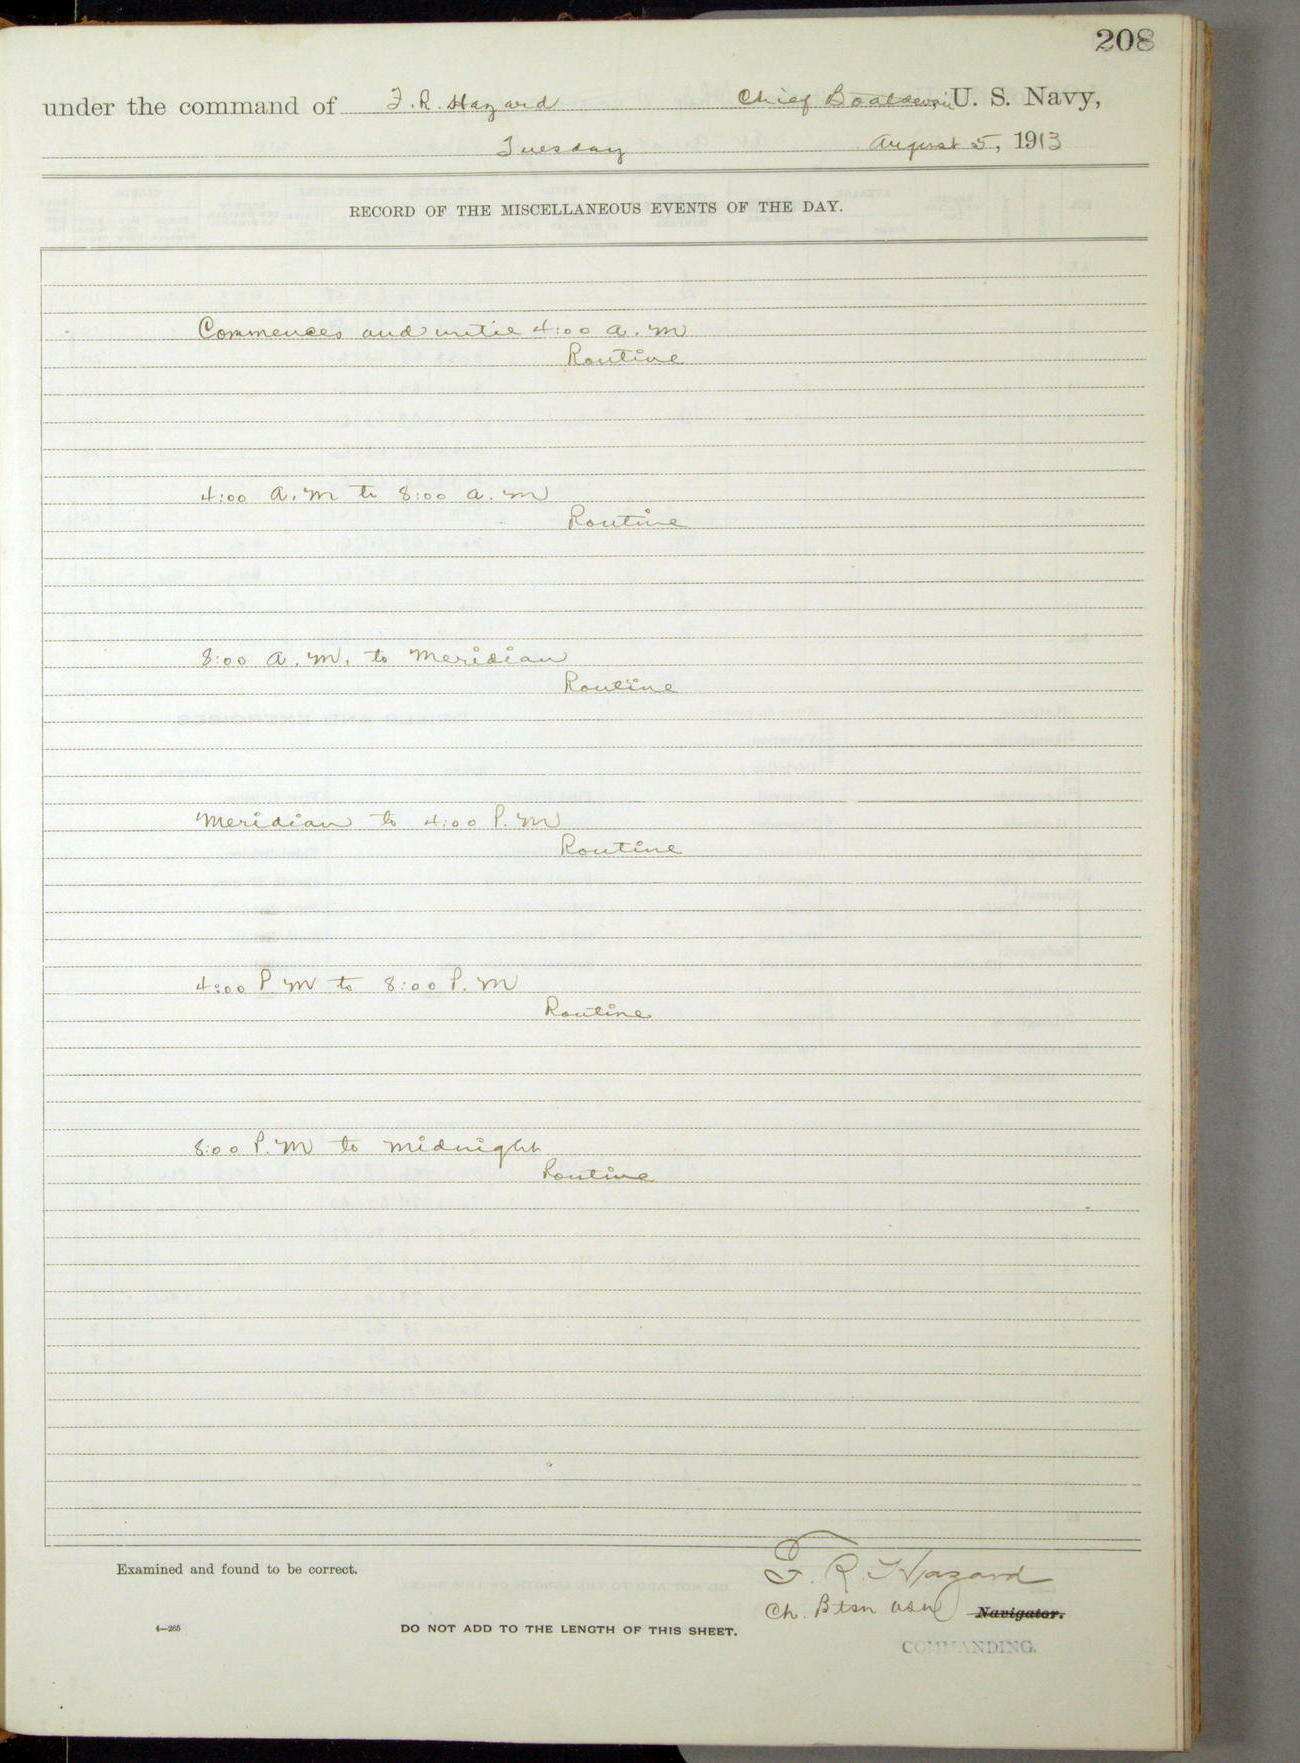 208
under the command of F. R. Hazard Chief Boatswain U. S. Navy,
Tuesday August 5, 1913
RECORD OF THE MISCELLANEOUS EVENTS OF THE DAY.
Commences and until 4:00 a.m
Routine
4:00 a.m to 8:00 a.m
Routine
8:00 a.m. to Meridian
Routine
Meridian to 4:00 P.M
Routine
4:00 P M to 8:00 P.M
Routine
8:00 P.M to Midnight
Routine
Examined and found to be correct.
F. R. Hazard
Ch. Btsn USN Navigator.
4—265
DO NOT ADD TO THE LENGTH OF THIS SHEET.
COMMANDING.